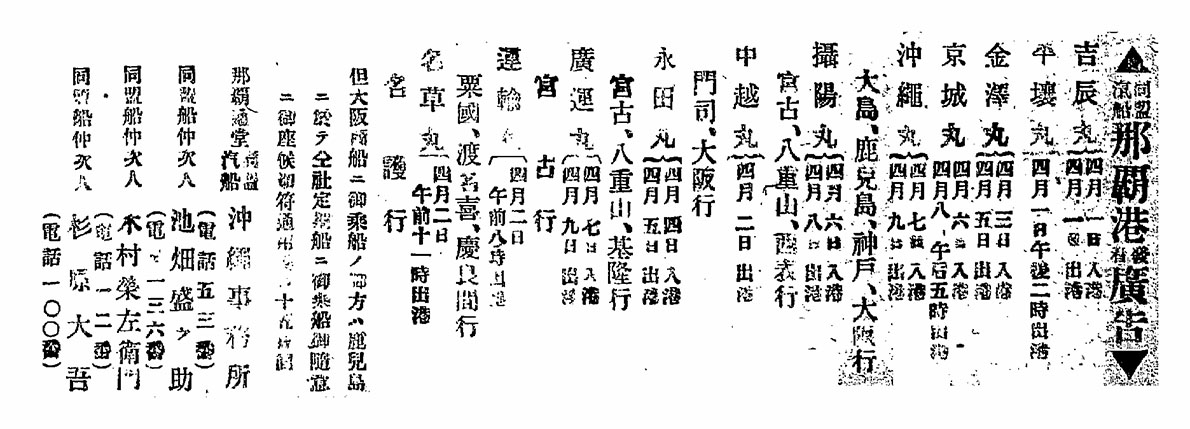 ▲同盟汽船那覇港發着廣告▼
吉辰丸 四月一日入港 四月一日出港
平壤丸 四月一日午後二時出港
金澤丸 四月三日入港 四月五日出港
京城丸 四月六日入港 四月八日午后五時出港
沖繩丸 四月七日入港 四月九日出港
大島、鹿兒島、神戸、大阪行
攝陽丸 四月六日入港 四月八日出港
宮古、八重山、西表行
中越丸 四月二日出港
門司、大阪行
永田丸 四月四日入港 四月五日出港
宮古、八重山、基隆行
廣運丸 四月七日入港 四月九日出港
宮古行
運輸丸 四月二日午前八時出港
粟國、渡名喜、慶良間行
名草丸 四月二日午前十一時出港
名護行
但大阪商船ニ御乘船ノ御方ハ鹿兒島
ニ於テ仝社定期船ニ御乘船御隨意
ニ御座候切符通用 十五日間
那覇通堂 同盟汽船 沖繩事務所
(電話五三番)
同盟船仲次人 池畑盛之助
(電話一三六番)
同盟船仲次人 木村榮左衞門
(電話一二番)
同盟船仲次人 杉原大吾
(電話一〇〇番)